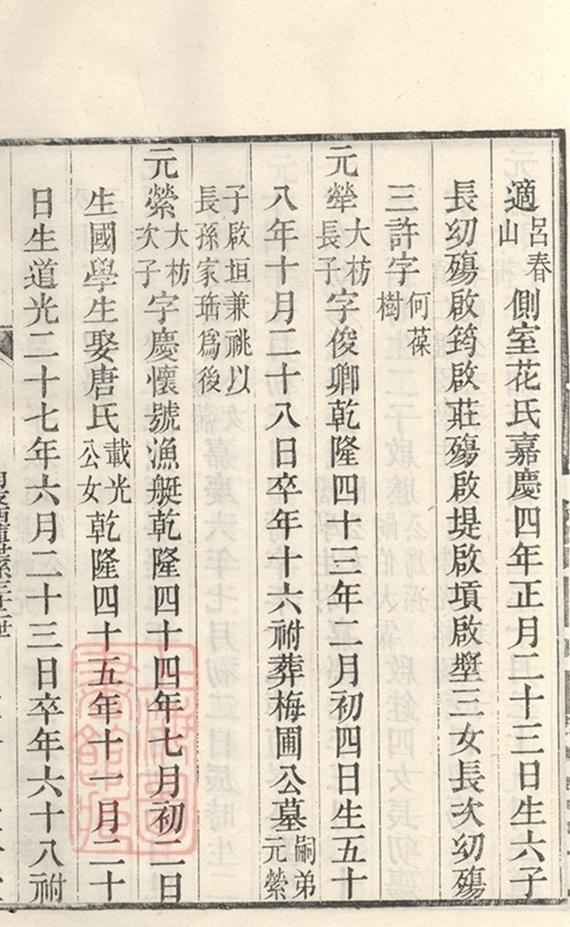 適呂春山側室花氏嘉慶四年正月二十三日生六子
長幼殤啟筠啟莊殤啟堤啟項啟壂三女長次幼殤
三許字何葆樹
元犖大枋長子字俊卿乾隆四十三年二月初四日生五十
八年十月二十八日卒年十六祔葬梅圃公墓嗣弟元縈
子啟垣兼祧以長孫家珤為後
元縈大枋次子字慶懷號漁艇乾隆四十四年七月初二日
生國學生娶唐氏載光公女乾隆四十五年十一月二十
日生道光二十七年六月二十三日卒年六十八祔